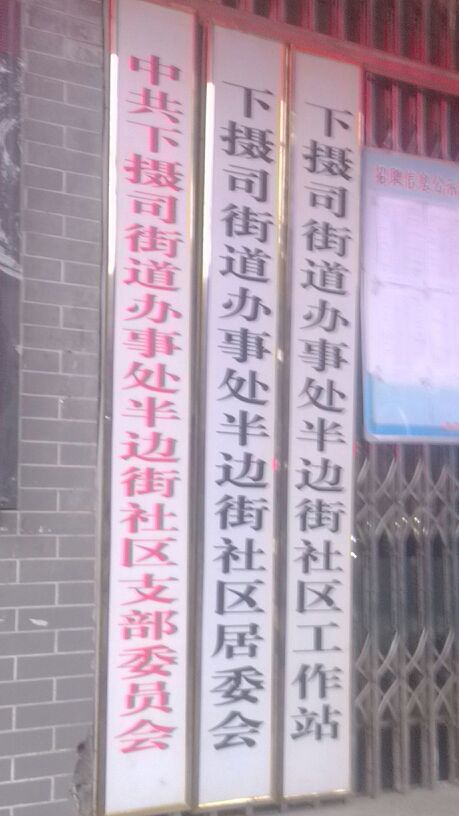 中共下摄司街道办事处半边街社区支部委员会
下摄司街道办事处半边街社区居委会
下摄司街道办事处半边街社区工作站
招聘信息公示